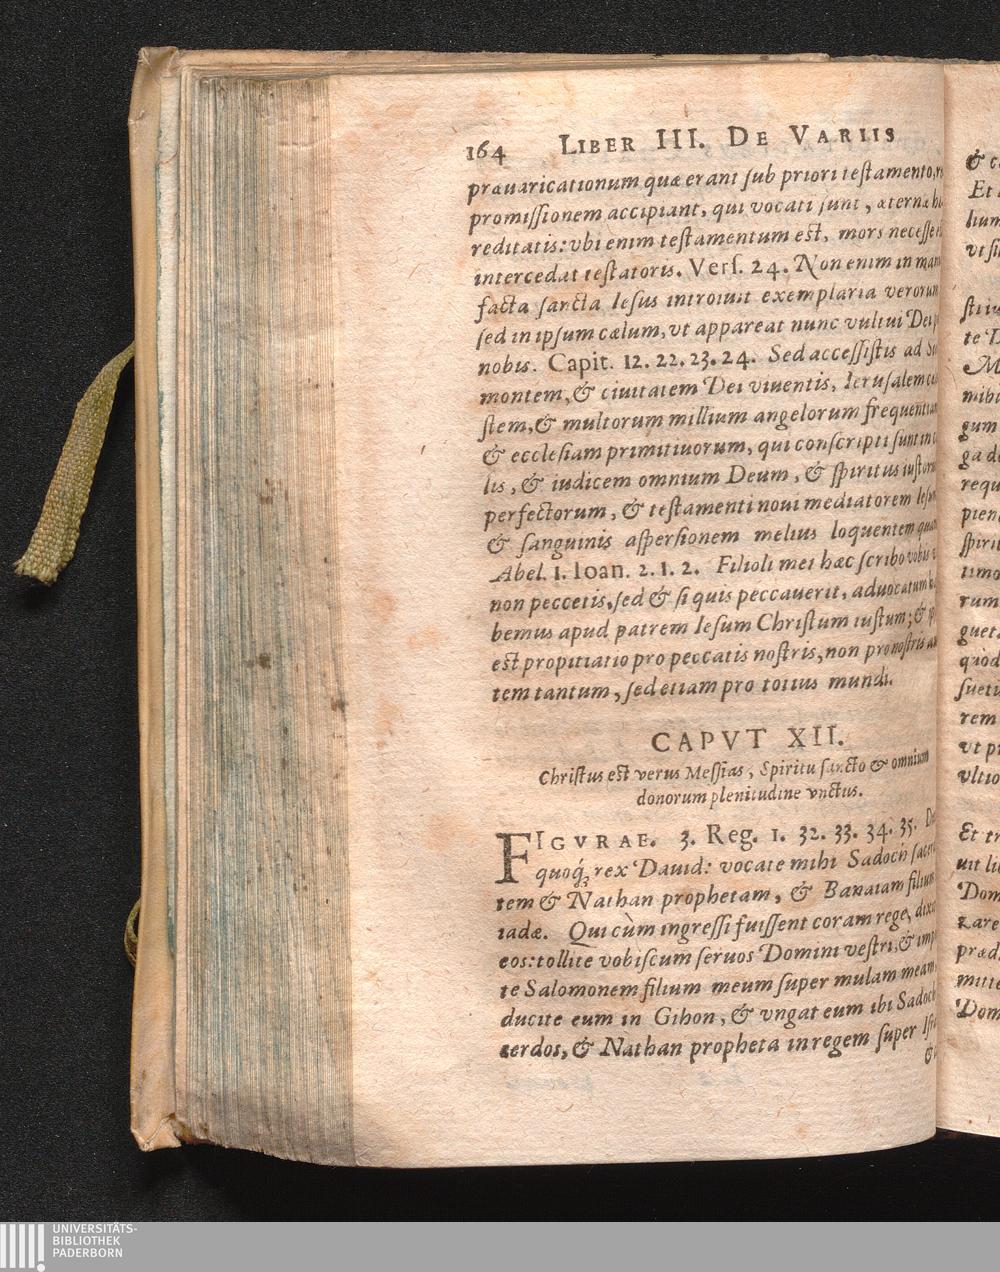 164 LIBER III. DE VARIIS
præuaricationum quæ erant sub priori testamento,
promissionem accipiant, qui vocati sunt, æternæ
reditatis: vbi enim testamentum est, mors necesse
intercedat testatoris. Vers. 24. Non enim in
facta sancta Iesus introiuit exemplaria verorum
sed in ipsum cælum, vt appareat nunc vultui Dei
nobis. Capit. 12. 22. 23. 24. Sed accessistis ad
montem, & ciuitatem Dei viuentis, Ierusalem
stem, & multorum millium angelorum frequentiam
& ecclesiam primitiuorum, qui conscripti sunt in
lis, & iudicem omnium Deum, & spiritus iustorum
perfectorum, & testamenti noui mediatorem Iesum
& sanguinis aspersionem melius loquentem quam
Abel. 1. Ioan. 2. 1. 2. Filioli mei hæc scribo vobis
non peccetis, sed & si quis peccauerit, aduocatum
bemus apud patrem Iesum Christum iustum; &
est propitiatio pro peccatis nostris, non pro nostris au
tem tantum, sed etiam pro totius mundi.
CAPVT XII.
Christus est verus Messias, Spiritu sancto & omnium
donorum plenitudine vnctus.
FIGVRAE. 3. Reg. 1. 32. 33. 34. 35.
quoq́; rex Dauid: vocate mihi Sadoch
tem & Nathan prophetam, & Banaiam filium
iadæ. Qui cùm ingressi fuissent coram rege,
eos: tollite vobiscum seruos Domini vestri, &
te Salomonem filium meum super mulam meam
ducite eum in Gihon, & vngat eum ibi Sadoch
cerdos, & Nathan propheta in regem super
&
Et
lium
te
rum
quòd
rem
Et
Dom
mitte
Dom
UNIVERSITÄTS-
BIBLIOTHEK
PADERBORN